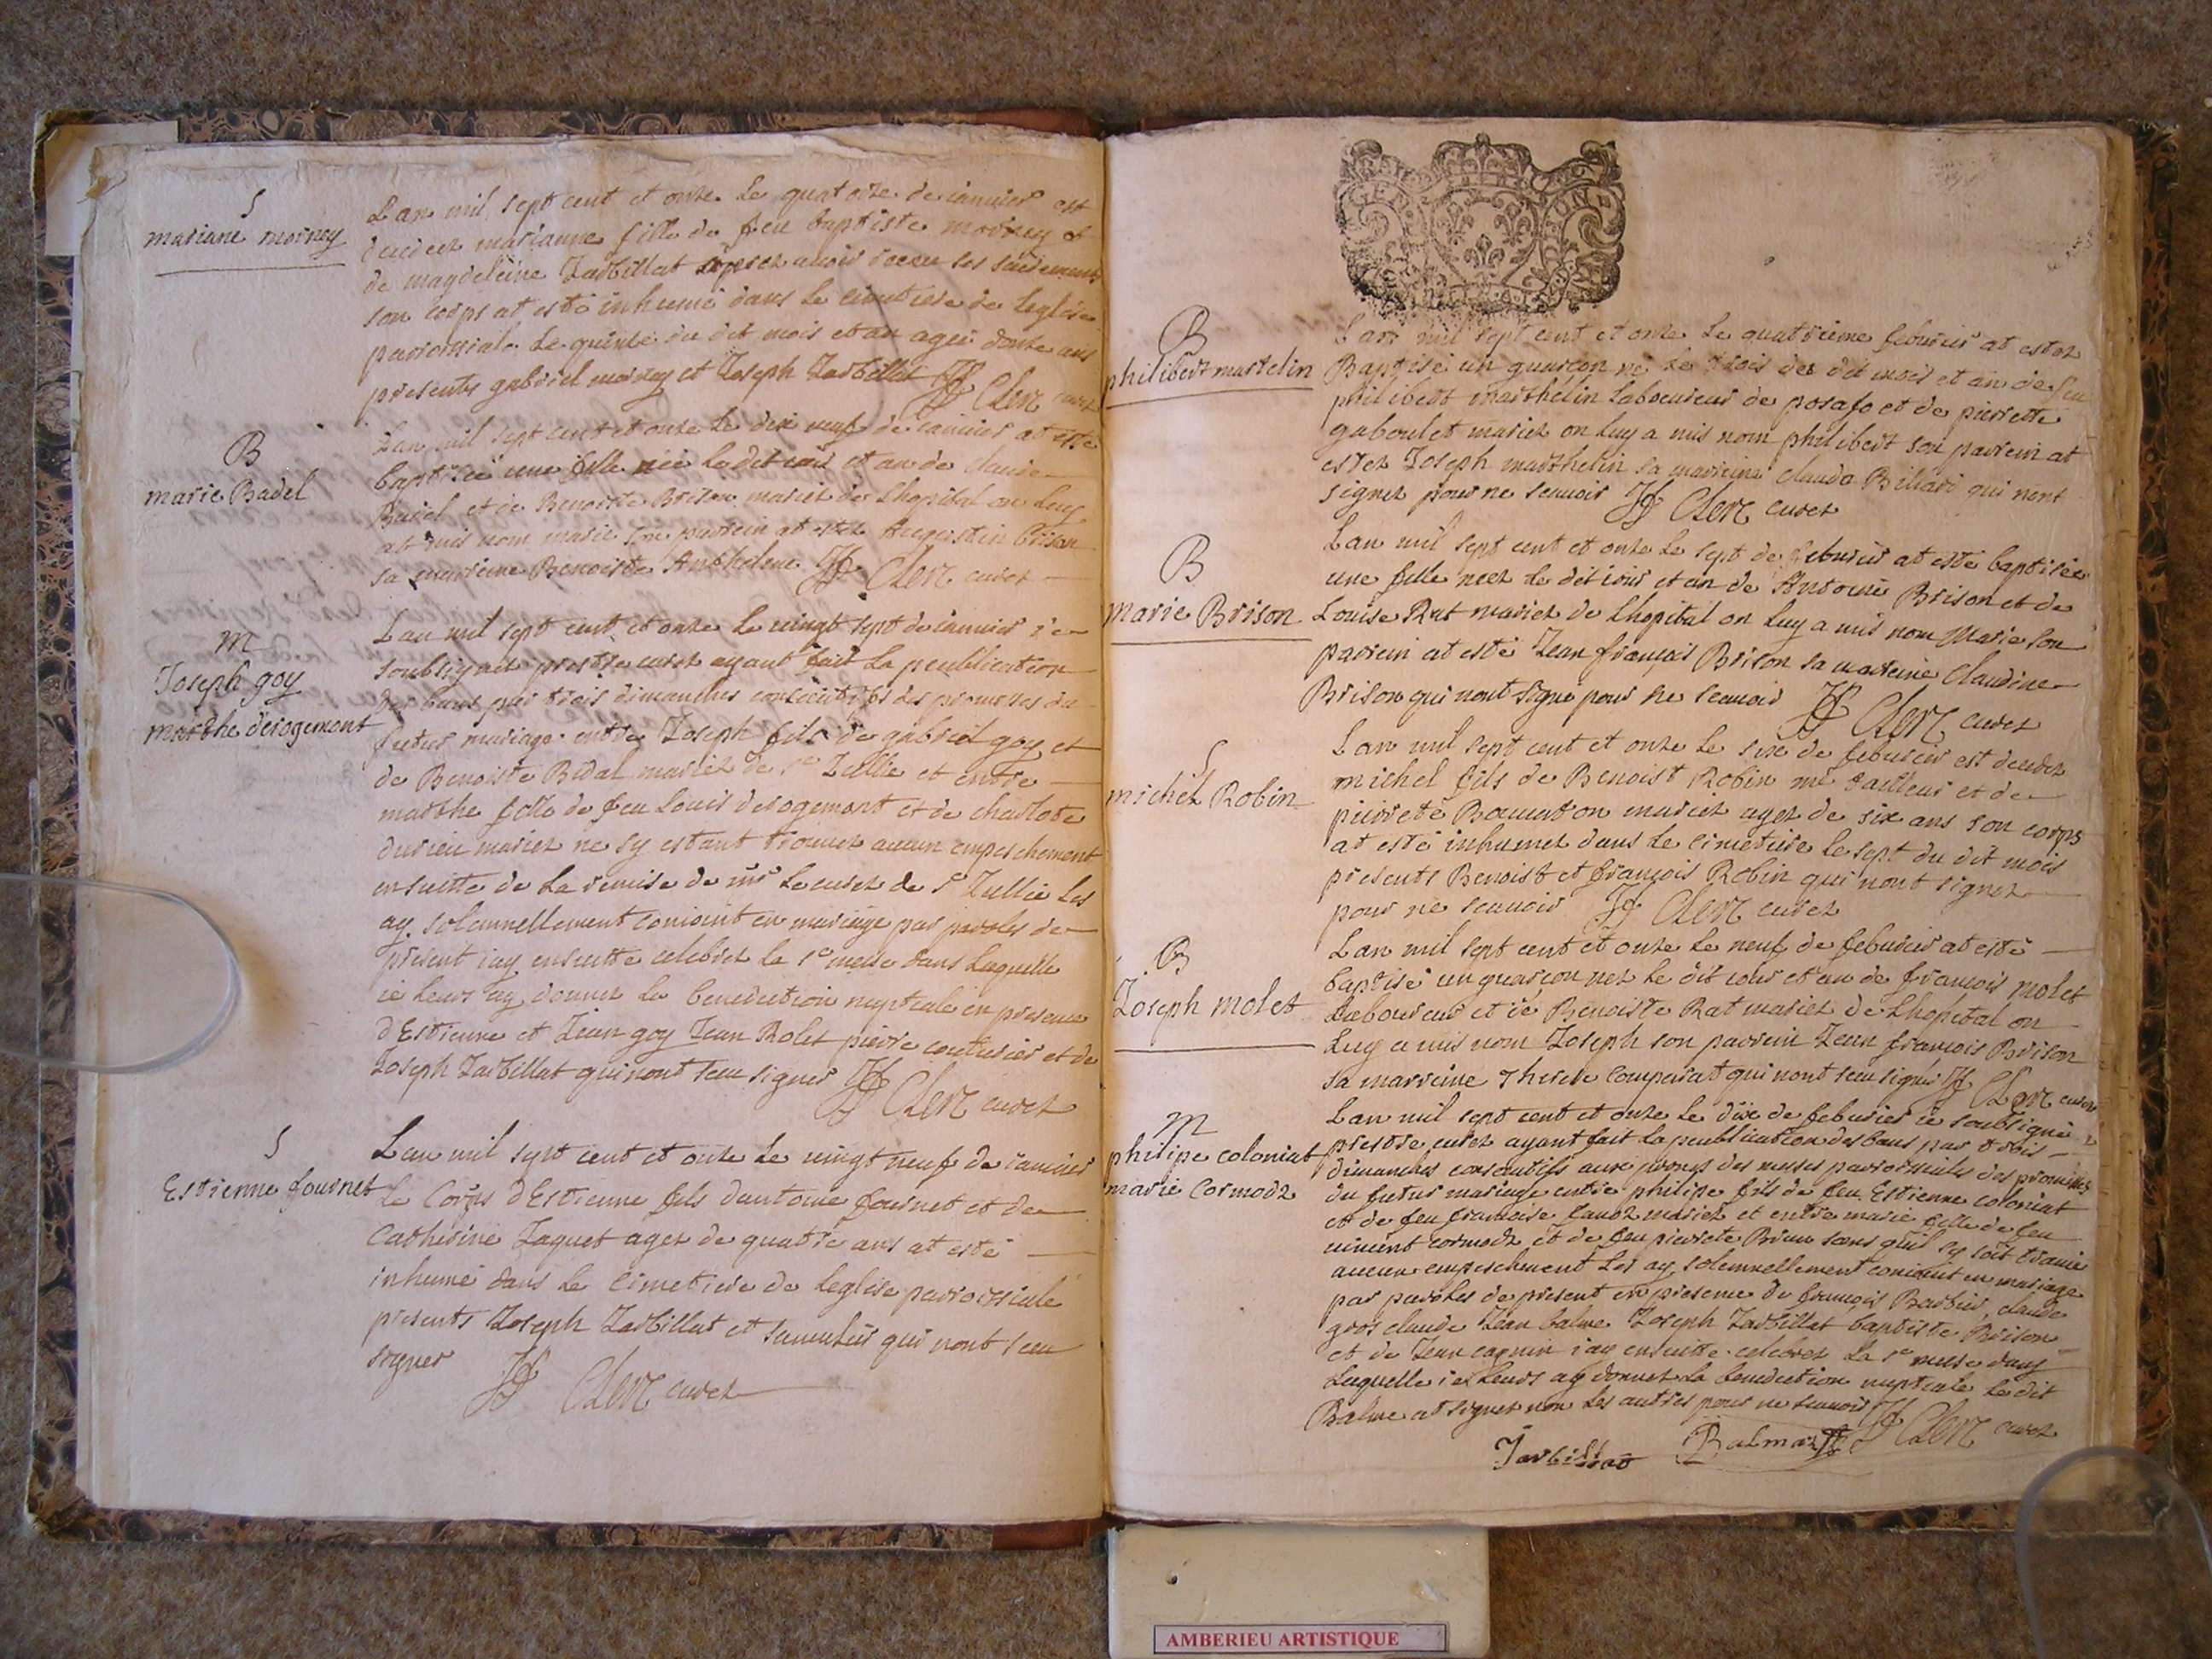 S
mariane mornay
Lan mil sept cent et onze le quatorze de ianvier est
decedez marianne fille de feu baptiste mornay et
de magdeleine Tarbillat apres avoir receu ses sacrements
son corps at esté inhumé dans le cimetiere de leglise
parroissiale le quinze du dit mois et an agee donze ans
presents gabriel mornay et Joseph Tarbillat JJ Clerc curez
B
marie Badel
Lan mil sept cent et onze le dix neuf de ianvier at esté
baptisée une fille née le dit iour et an de claude
Badel et de Benoiste Brison mariez de Lhopital on luy
at mis nom marie son parrein at estez Augustin Brison
sa marreine Benoiste Anthelme JJ Clerc curez
M
Joseph goy
marthe derogemont
Lan mil sept cent et onze le vingt sept de ianvier ie
soubsignez prestre curez ayant fait la peublication
des bans par trois dimanches consecutifs des promesses du
futur mariage entre Joseph fils de gabriel goy et
de Benoiste Bidal mariez de st Jullie et entre
marthe fille de feu Louis derogemont et de charlote
durieu mariez ne sy estant trouvez aucun empeschement
ensuitte de la remise de mr le curez de st Jullie les
ay solemnellement conioint en mariage par paroles de
present iay ensuitte celebrez la ste messe dans laquelle
ie leurs ay donnez la benediction nuptiale en presence
dEstienne et Jean goy Jean Rolet pierre couturier et de
Joseph Tarbillat qui nont sceu signer JJ Clerc curez
S
Estienne fournet
Lan mil sept cent et onze le vingt neuf de ianvier
le Corps dEstienne fils dantoine fournet et de
Catherine Jaquet agez de quatre ans at esté
inhumé dans le cimetiere de leglise parroissiale
presents Joseph Tarbillat et qui nont sceu
signer JJ Clerc curez
B
philibert martelin
Lan mil sept cent et onze le quatrieme febvrier at estez
Baptisé un guarçon né le trois des dit mois et an de feu
philibert marthelin laboureur de posafo et de pierrette
gaboulet mariez on luy a mis nom philibert son parrein at
estez Joseph marthelin sa marreine clauda Billiard qui nont
signez pour ne scauoir JJ Clerc curez
B
Marie Brison
Lan mil sept cent et onze le sept de febvrier at esté baptisée
une fille neez le dit iour et an de Antoine Brison et de
Louise Rat mariez de Lhopital on luy a mis nom Marie son
parrein at esté Jean françois Brison sa marreine Claudine
Brison qui nont signé pour ne scauoir JJ Clerc curez
S
michel Robin
Lan mil sept cent et onze le six de febvrier est decedez
michel fils de Benoist Robin me tailleur et de
pierrete Bouvaton mariez agez de six ans son corps
at esté inhumez dans le cimetiere le sept du dit mois
presents Benoist et françois Robin qui nont signez
pour ne scauoir JJ Clerc curez
B
Joseph molet
Lan mil sept cent et onze le neuf de febvrier at esté
baptisé un guarçon nez le dit iour et an de françois molet
laboureur et de Benoiste Rat mariez de Lhopital on
luy a mis nom Joseph son parrein Jean françois Brison
sa marreine Therese comparat qui nont sceu signer JJ Clerc curez
M
philipe coloniat
marie Cormodz
Lan mil sept cent et onze le dix de febvrier ie soubsigné
prestre curez ayant fait la peublication des bans par trois
dimanches consecutifs aux prones des messes parroissiales des promesses
du futur mariage entre philipe fils de feu Estienne coloniat
et de feu françoise mariez et entre marie fille de feu
vincent cormodz et de feu pierrete Brun sans quil sy soit trouvé
aucun empeschement les ay solemnellement conioint en mariage
par paroles de present en presence de françois Barbier claude
gros claude Jean balme Joseph Tarbillat baptiste Brison
et de Jean cagnin iay ensuitte celebrez la ste messe dans
laquelle ie leurs ay donnez la benediction nuptiale le dit
Balme at signez non les autres pour ne scauoir JJ Clerc curez
Tarbillat Balmaz
AMBERIEU ARTISTIQUE